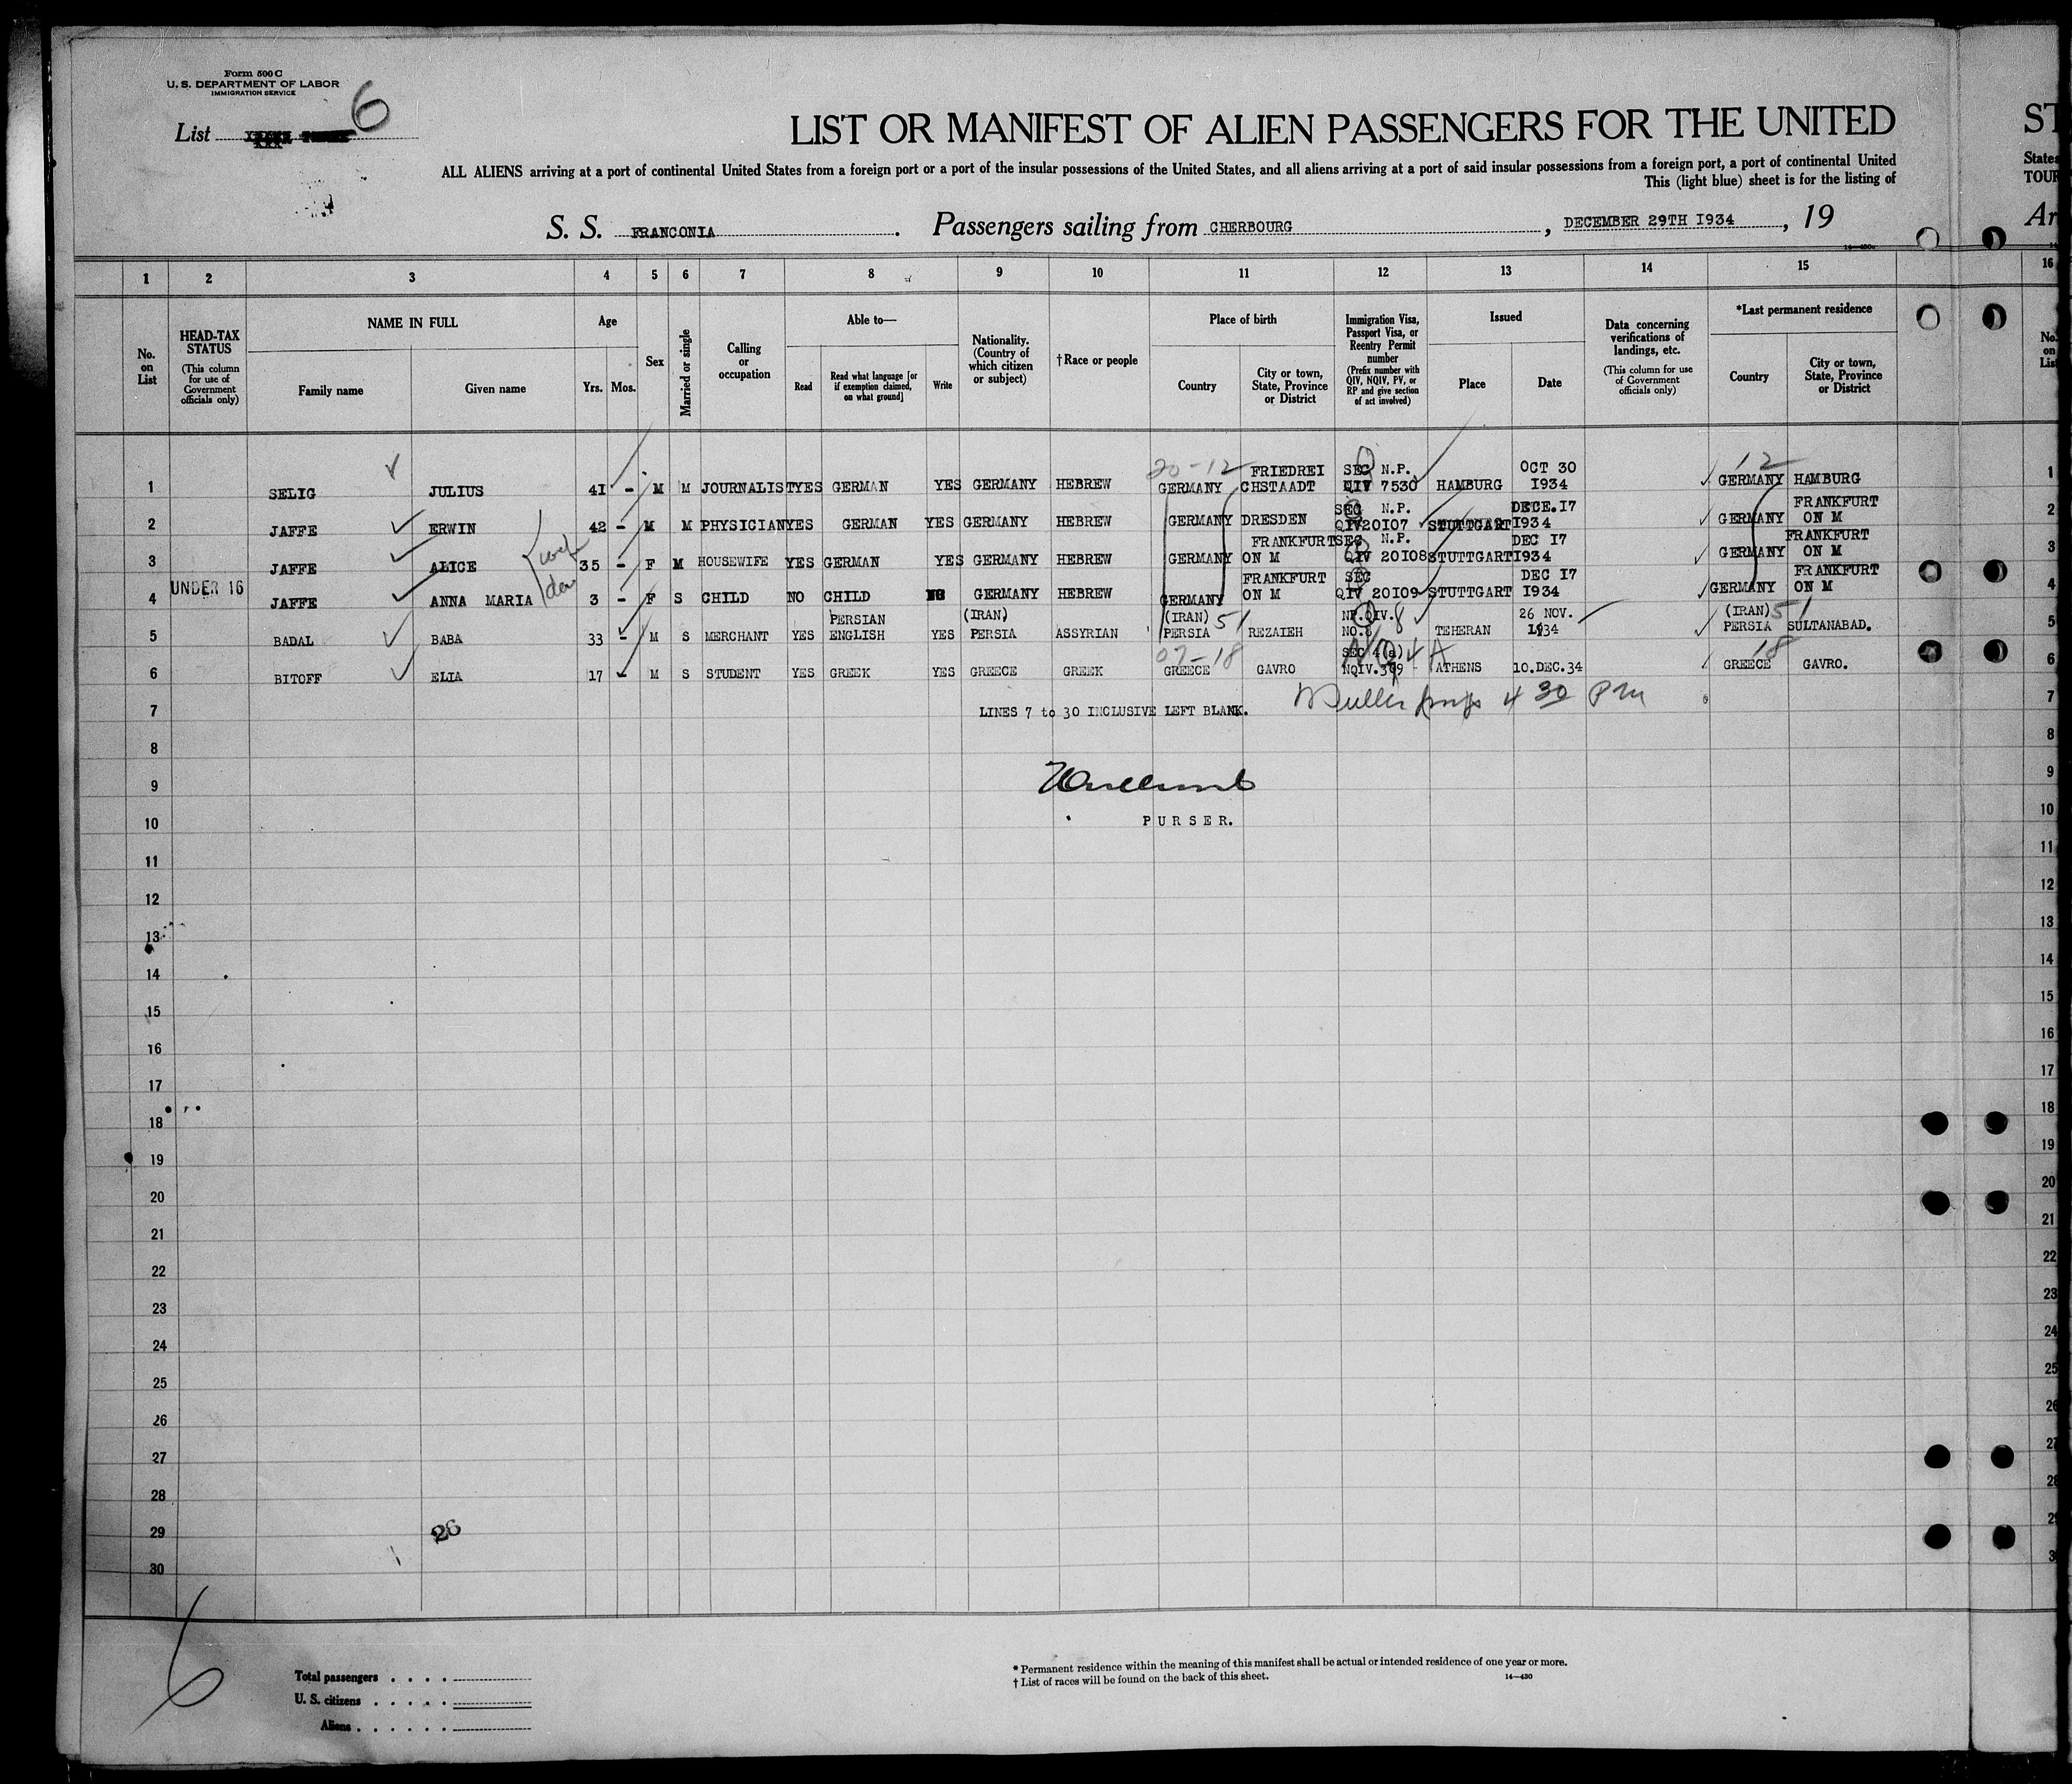 Form 500 C
U. S. DEPARTMENT OF LABOR
IMMIGRATION SERVICE
List 6
LIST OR MANIFEST OF ALIEN PASSENGERS FOR THE UNITED
ST
ALL ALIENS arriving at a port of continental United States from a foreign port or a port of the insular possessions of the United States, and all aliens arriving at a port of said insular possessions from a foreign port, a port of continental United
States
This (light blue) sheet is for the listing of
TOUR
S. S. FRANCONIA. Passengers sailing from CHERBOURG, DECEMBER 29TH 1934, 19
Ar
1 2 3 4 5 6 7 8 9 10 11 12 13 14 15 16
No. on List
HEAD-TAX STATUS (This column for use of Government officials only)
NAME IN FULL
Family name Given name
Age
Yrs. Mos.
Sex
Married or single
Calling or occupation
Able to—
Read Read what language [or if exemption claimed, on what ground] Write
Nationality. (Country of which citizen or subject)
†Race or people
Place of birth
Country City or town, State, Province or District
Immigration Visa, Passport Visa, or Reentry Permit number (Prefix number with QIV, NQIV, PV, or RP and give section of act involved)
Issued
Place Date
Data concerning verifications of landings, etc. (This column for use of Government officials only)
*Last permanent residence
Country City or town, State, Province or District
No. on List
20-12 FRIEDREI SEC N.P. OCT 30 12
1 SELIG JULIUS 41 - M M JOURNALIST YES GERMAN YES GERMANY HEBREW GERMANY CHSTAADT QIV 7530 HAMBURG 1934 GERMANY HAMBURG 1
SEC N.P. DECE.17 FRANKFURT
2 JAFFE ERWIN 42 - M M PHYSICIAN YES GERMAN YES GERMANY HEBREW GERMANY DRESDEN QIV 20107 STUTTGART 1934 GERMANY ON M 2
FRANKFURT SEC N.P. DEC 17 FRANKFURT
3 JAFFE ALICE wife 35 - F M HOUSEWIFE YES GERMAN YES GERMANY HEBREW GERMANY ON M QIV 20108 STUTTGART 1934 GERMANY ON M 3
UNDER 16 FRANKFURT SEC DEC 17 FRANKFURT
4 JAFFE ANNA MARIA dau 3 - F S CHILD NO CHILD NO GERMANY HEBREW GERMANY ON M QIV 20109 STUTTGART 1934 GERMANY ON M 4
PERSIAN (IRAN) (IRAN) 51 NP.QIV. 8 26 NOV. (IRAN) 51
5 BADAL BABA 33 - M S MERCHANT YES ENGLISH YES PERSIA ASSYRIAN PERSIA REZAIEH NO.8 TEHERAN 1934 PERSIA SULTANABAD. 5
07-18 SEC 4(a) 4 A 18
6 BITOFF ELIA 17 - M S STUDENT YES GREEK YES GREECE GREEK GREECE GAVRO NQIV.399 ATHENS 10.DEC.34 GREECE GAVRO. 6
7 LINES 7 to 30 INCLUSIVE LEFT BLANK. 4 30 PM 7
8 8
9 9
10 PURSER. 10
11 11
12 12
13 13
14 14
15 15
16 16
17 17
18 18
19 19
20 20
21 21
22 22
23 23
24 24
25 25
26 26
27 27
28 28
29 26 29
30 3
6
Total passengers
U. S. citizens
Aliens
* Permanent residence within the meaning of this manifest shall be actual or intended residence of one year or more.
† List of races will be found on the back of this sheet.
14—430